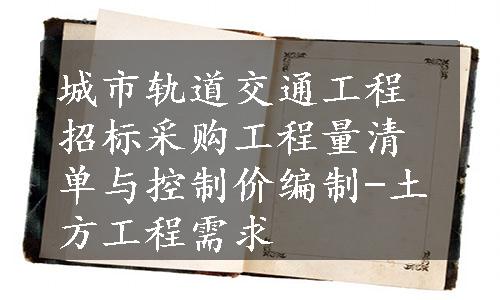 城市轨道交通工程
招标采购工程量清
单与控制价编制-土
方工程需求